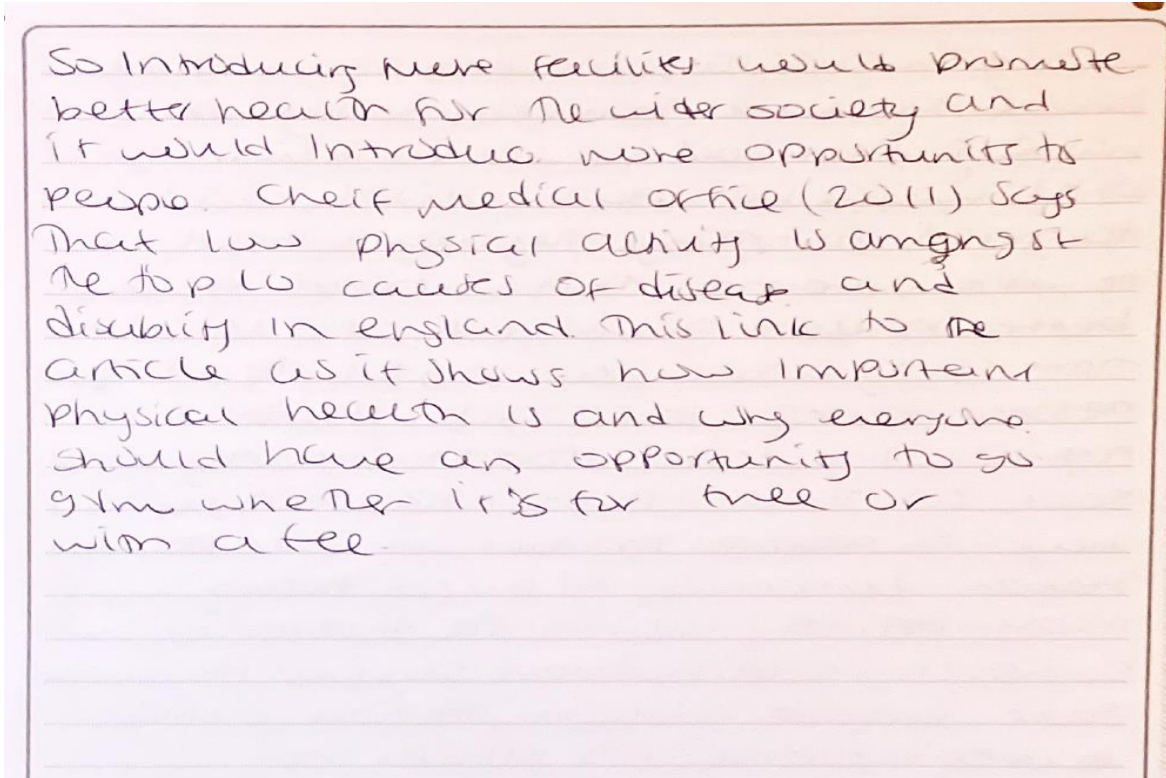 So Introducing more facilities would promote
better health for the wider society and
it would Introduce more opportunits to
people. Cheif medical office (2011) says
That low physical activity is amongst
the top 10 causes of disease and
disability in england. This link to the
article as it shows how important
physical health is and why everyone
should have an opportunity to go
gym whether it's for free or
with a fee.